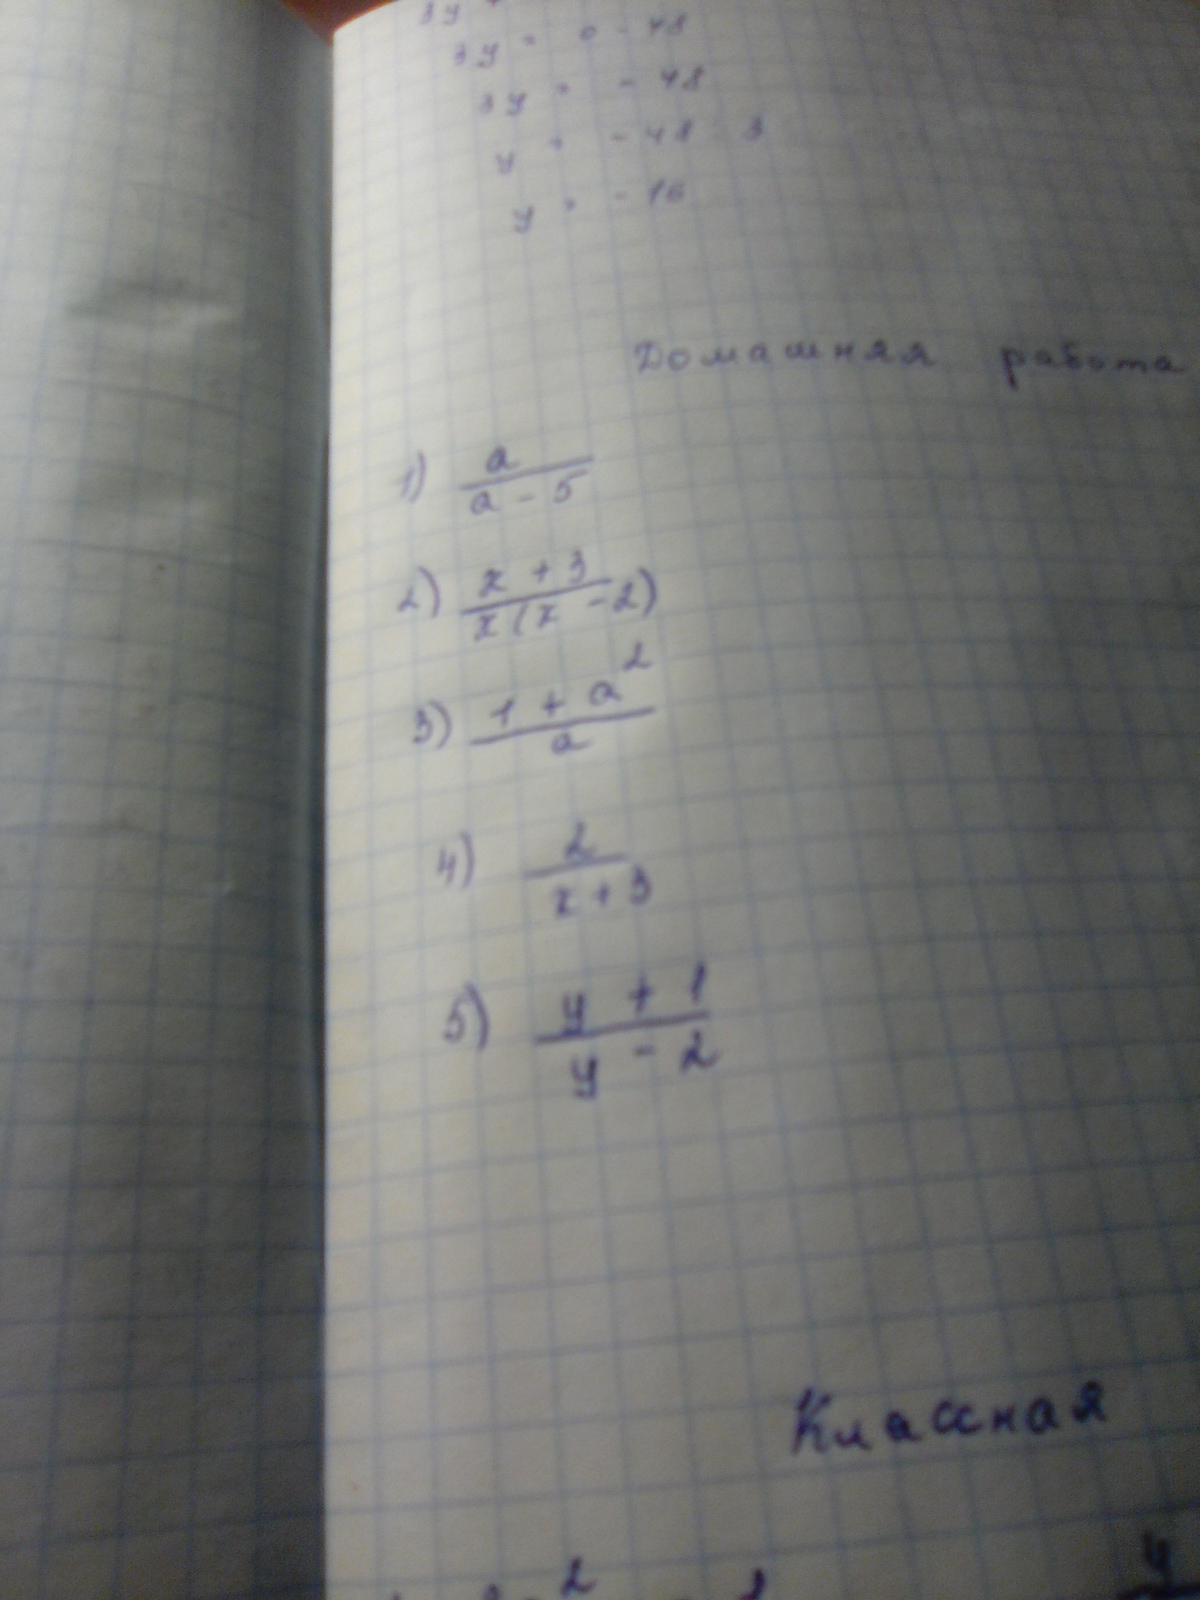 3y
3y = 0 - 48
3y = - 48
y = - 48 : 3
y = - 16
Домашняя работа
1) a / a - 5
2) x + 3 / x(x - 2)
3) 1 + a² / a
4) 2 / x + 3
5) y + 1 / y - 2
Классная